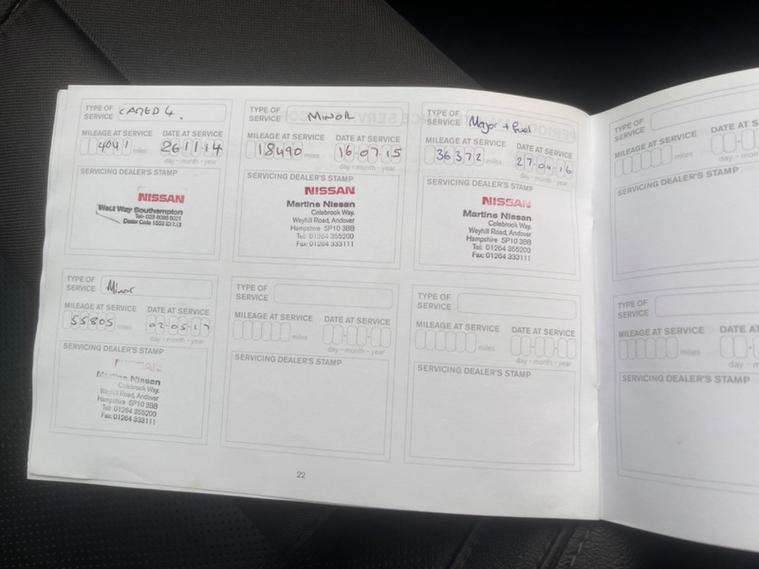 TYPE OF SERVICE
MILEAGE AT SERVICE DATE AT SERVICE
4041 miles 26 11 14
day - month - year
SERVICING DEALER'S STAMP
NISSAN
West Way Southampton
TYPE OF SERVICE MINOR
MILEAGE AT SERVICE DATE AT SERVICE
18490 miles 16 07 15
day - month - year
SERVICING DEALER'S STAMP
NISSAN
Martins Nissan
Colebrook Way,
Weyhill Road, Andover
Hampshire SP10 3BB
Tel: 01264 355200
Fax: 01264 333111
TYPE OF SERVICE Major + fuel
MILEAGE AT SERVICE DATE AT SERVICE
36372 miles 27 04 16
day - month - year
SERVICING DEALER'S STAMP
NISSAN
Martins Nissan
Colebrook Way,
Weyhill Road, Andover
Hampshire SP10 3BB
Tel: 01264 355200
Fax: 01264 333111
TYPE OF SERVICE
MILEAGE AT SERVICE DATE
miles
SERVICING DEALER'S STAMP
TYPE OF SERVICE Minor
MILEAGE AT SERVICE DATE AT SERVICE
55805 miles 02 05 17
day - month - year
SERVICING DEALER'S STAMP
NISSAN
Martins Nissan
Colebrook Way,
Weyhill Road, Andover
Hampshire SP10 3BB
Tel: 01264 355200
Fax: 01264 333111
TYPE OF SERVICE
MILEAGE AT SERVICE DATE AT SERVICE
miles
day - month - year
SERVICING DEALER'S STAMP
TYPE OF SERVICE
MILEAGE AT SERVICE DATE AT SERVICE
miles
day - month - year
SERVICING DEALER'S STAMP
TYPE OF SERVICE
MILEAGE AT SERVICE DATE
miles
SERVICING DEALER'S STAMP
22